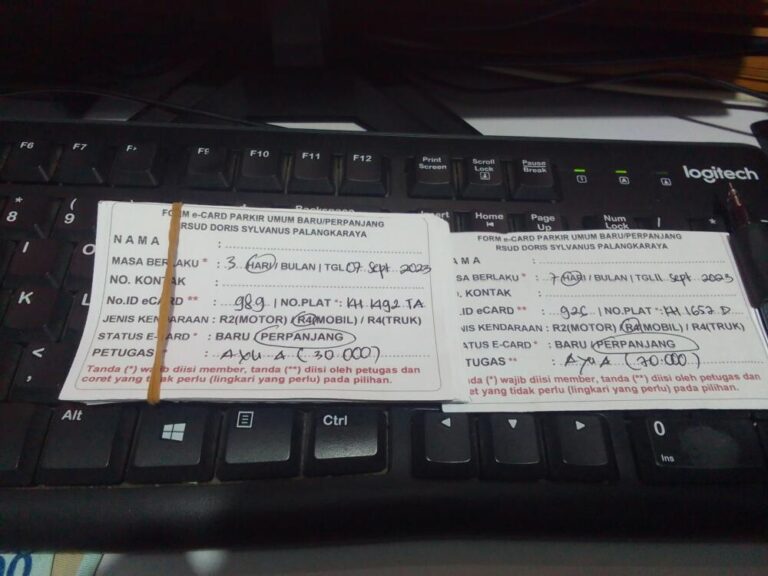 F6 F7 F9 F10 F11 F12 Print Screen Scroll Lock Pause Break
logitech
8 ( 9 Home Page Up Num Lock / *
FORM e-CARD PARKIR UMUM BARU/PERPANJANG
RSUD DORIS SYLVANUS PALANGKARAYA
NAMA :
MASA BERLAKU * : 3 HARI / BULAN | TGL 07 Sept 2023
NO. KONTAK :
No.ID eCARD ** : 989 | NO.PLAT * : KH 1492 TA
JENIS KENDARAAN : R2(MOTOR) / R4(MOBIL) / R4(TRUK)
STATUS E-CARD * : BARU / PERPANJANG
PETUGAS ** : Ayu A (30.000)
Tanda (*) wajib diisi member, tanda (**) diisi oleh petugas dan
coret yang tidak perlu (lingkari yang perlu) pada pilihan.
FORM e-CARD PARKIR UMUM BARU/PERPANJANG
RSUD DORIS SYLVANUS PALANGKARAYA
NAMA :
SA BERLAKU * : 7 HARI / BULAN | TGL 11 Sept 2023
. KONTAK :
.ID eCARD ** : 926 | NO.PLAT * : KH 1657 D
NIS KENDARAAN : R2(MOTOR) / R4(MOBIL) / R4(TRUK)
ATUS E-CARD * : BARU / PERPANJANG
TUGAS ** : Ayu A (70.000)
da (*) wajib diisi member, tanda (**) diisi oleh petugas dan
et yang tidak perlu (lingkari yang perlu) pada pilihan.
I O
K L
< ,
Alt Ctrl 0 Ins